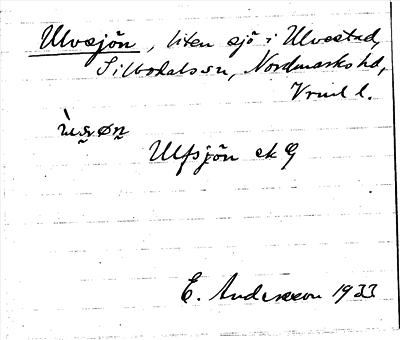 Ulvsjön, liten sjö i Ulvestad,
Silbodals sn, Nordmarks hd,
Vrml l.
Ulfsjön ek
E. Andersson 1933